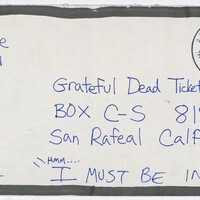 Grateful Dead Ticket
BOX C-S 81
San Rafeal Calf
Hmm....
I MUST BE IN